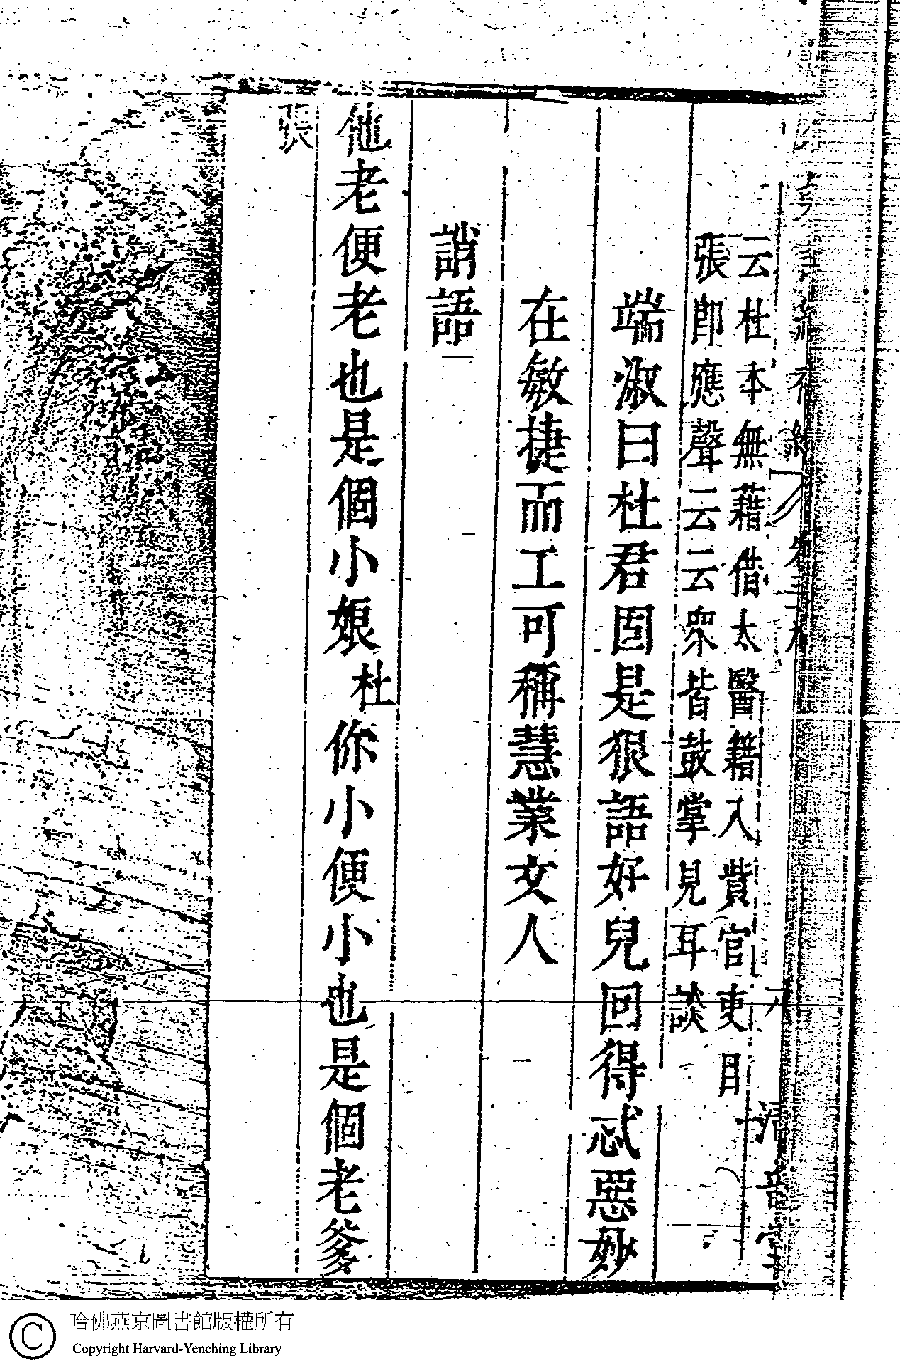 云杜本無藉借太醫籍入貲官吏目
張郎應聲云云眾皆鼓掌見耳談
端淑曰杜君固是狠語好兒回得忒惡妙
在敏捷而工可稱慧業女人
誚語
他老便老也是個小娘杜你小便小也是個老爹
張
哈佛燕京圖書館版權所有
Copyright Harvard-Yenching Library